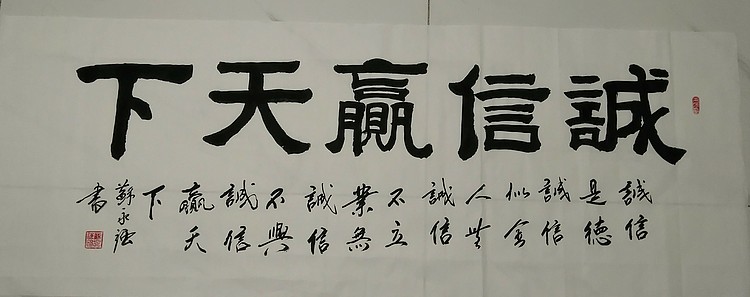 誠信贏天下
誠信
是德
誠信
似金
人無
誠信
不立
業無
誠信
不興
誠信
贏天
下
蘇永强
書